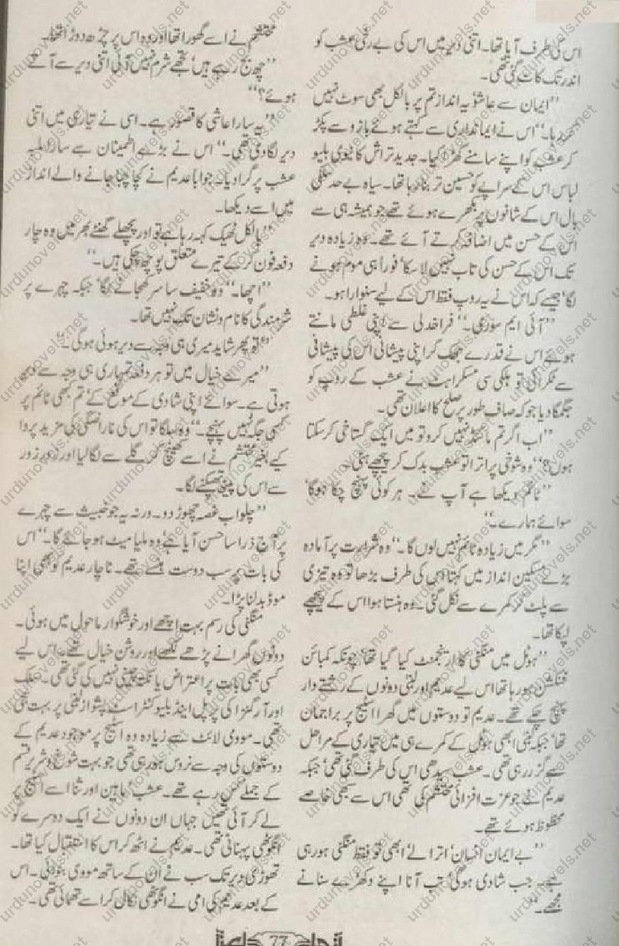 اس کی طرف آیا تھا۔ اتنی دیر میں اس کی بے رخی عشب کو
اندر تک کاٹ گئی تھی۔
”ایمان سے عاشو یہ انداز تم پر بالکل بھی سوٹ نہیں
کر رہا۔“ اس نے ایمانداری سے کہتے ہوئے بازو سے پکڑ
کر عشب کو اپنے سامنے کھڑا کیا۔ جدید تراش کا نیوی بلیو
لباس اس کے سراپے کو حسین تر بنا رہا تھا۔ سیاہ بے حد سلکی
بال اس کے شانوں پر بکھرے ہوئے تھے جو ہمیشہ ہی سے
اس کے حسن میں اضافہ کرتے آئے تھے۔ وہ زیادہ دیر
تک اس کے حسن کی تاب نہیں لا سکا فوراً ہی موم ہونے
لگا جیسے کہ اس نے یہ روپ فقط اس کے لیے سنوارا ہو۔
”آئی ایم سوری۔“ فراخدلی سے اپنی غلطی مانتے
ہوئے اس نے قدرے جھک کر اپنی پیشانی اس کی پیشانی
سے ٹکرائی تو ہلکی سی مسکراہٹ نے عشب کے روپ کو
جگمگا دیا جو کہ صاف طور پر صلح کا اعلان تھی۔
”اب اگر تم مائنڈ نہیں کرو تو میں ایک گستاخی کر سکتا
ہوں؟“ وہ شوخی پر اترا تو عشب بدک کر پیچھے ہٹی۔
”ٹائم دیکھا ہے آپ نے۔ ہر کوئی پہنچ چکا ہوگا
سوائے ہمارے۔“
”مگر میں زیادہ ٹائم نہیں لوں گا۔“ وہ شرارت پر آمادہ
بڑے مسکین انداز میں کہتا اس کی طرف بڑھا تو وہ تیزی
سے پلٹ کر کمرے سے نکل گئی۔ وہ ہنستا ہوا اس کے پیچھے
لپکا تھا۔
”ہوٹل میں منگنی کا ارینجمنٹ کیا گیا تھا چونکہ کمبائن
فنکشن ہو رہا تھا اس لیے عدیم اور لبنیٰ دونوں کے رشتے دار
پہنچ چکے تھے۔ عدیم تو دوستوں میں گھرا اسٹیج پر براجمان
تھا جبکہ لبنیٰ ابھی ہوٹل کے کمرے ہی میں تیاری کے مراحل
سے گزر رہی تھی۔ عشب سیدھی اس کی طرف گئی تھی جبکہ
عدیم نے جو عزت افزائی محتشم کی تھی اس سے سبھی خاصے
محظوظ ہوئے تھے۔
”بے ایمان انسان اترا لے ابھی تو فقط منگنی ہو رہی
ہے جب شادی ہوگی تب آنا اپنے دکھڑے سنانے
مجھے۔“
محتشم نے اسے گھورا تھا اور وہ اس پر چڑھ دوڑا تھا۔
”چھ بج رہے ہیں تجھے شرم نہیں آئی اتنی دیر سے آتے
ہوئے؟“
”یہ سارا عاشی کا قصور ہے۔ اسی نے تیاری میں اتنی
دیر لگا دی تھی۔“ اس نے بڑے اطمینان سے سارا ملبہ
عشب پر گرا دیا۔ جواباً عدیم نے کچا چبا جانے والے انداز
میں اسے دیکھا۔
”بالکل ٹھیک کہہ رہا ہے تو اور پچھلے گھنٹے بھر میں وہ چار
دفعہ فون کر کے تیرے متعلق پوچھ چکی ہیں۔“
”اچھا۔“ وہ خفیف سا سر کھجانے لگا جبکہ چہرے پر
شرمندگی کا نام و نشان تک نہیں تھا۔
”تو پھر شاید میری ہی وجہ سے دیر ہوئی ہوگی۔“
”میرے خیال میں تو ہر دفعہ تمہاری ہی وجہ سے دیر
ہوتی ہے۔ سوائے اپنی شادی کے موقع کے تم کبھی ٹائم پر
کسی جگہ نہیں پہنچے۔“ وہ سلگا تو اس کی ناراضگی کی مزید پروا
کیے بغیر محتشم نے اسے کھینچ کر گلے سے لگا لیا اور زور زور
سے اس کی پیٹھ تھپکنے لگا۔
”چلو اب غصہ چھوڑ دو۔ ورنہ یہ جو خبیث سے چہرے
پر آج ذرا سا حسن آیا ہے وہ ملیا میٹ ہو جائے گا۔“ اس
کی بات پر سب دوست ہنسے تھے۔ ناچار عدیم کو بھی اپنا
موڈ بدلنا پڑا۔
منگنی کی رسم بہت اچھے اور خوشگوار ماحول میں ہوئی۔
دونوں گھرانے پڑھے لکھے اور روشن خیال تھے۔ اس لیے
کسی بھی بات پر اعتراض یا نکتہ چینی نہیں کی گئی تھی۔ سلک
اور آرگنزا کی پرپل اینڈ بلیو کنٹراسٹ پشواز لبنیٰ پر بہت سجی
تھی۔ مووی لائٹ سے زیادہ وہ اسٹیج پر موجود عدیم کے
دوستوں کی وجہ سے نروس ہو رہی تھی جو بہت شوخ و شریر قسم
کے جملے کس رہے تھے۔ عشب ماہین اور ثنا اسے اسٹیج پر
لے کر آئی تھیں جہاں ان دونوں نے ایک دوسرے کو
انگوٹھی پہنائی تھی۔ عدیم نے اٹھ کر اس کا استقبال کیا تھا۔
تھوڑی دیر تک سب نے ان کے ساتھ مووی بنوائی۔ اس
کے بعد عدیم کی امی نے انگوٹھی نکال کر اسے تھمائی تھی۔
77
urdunovels.net